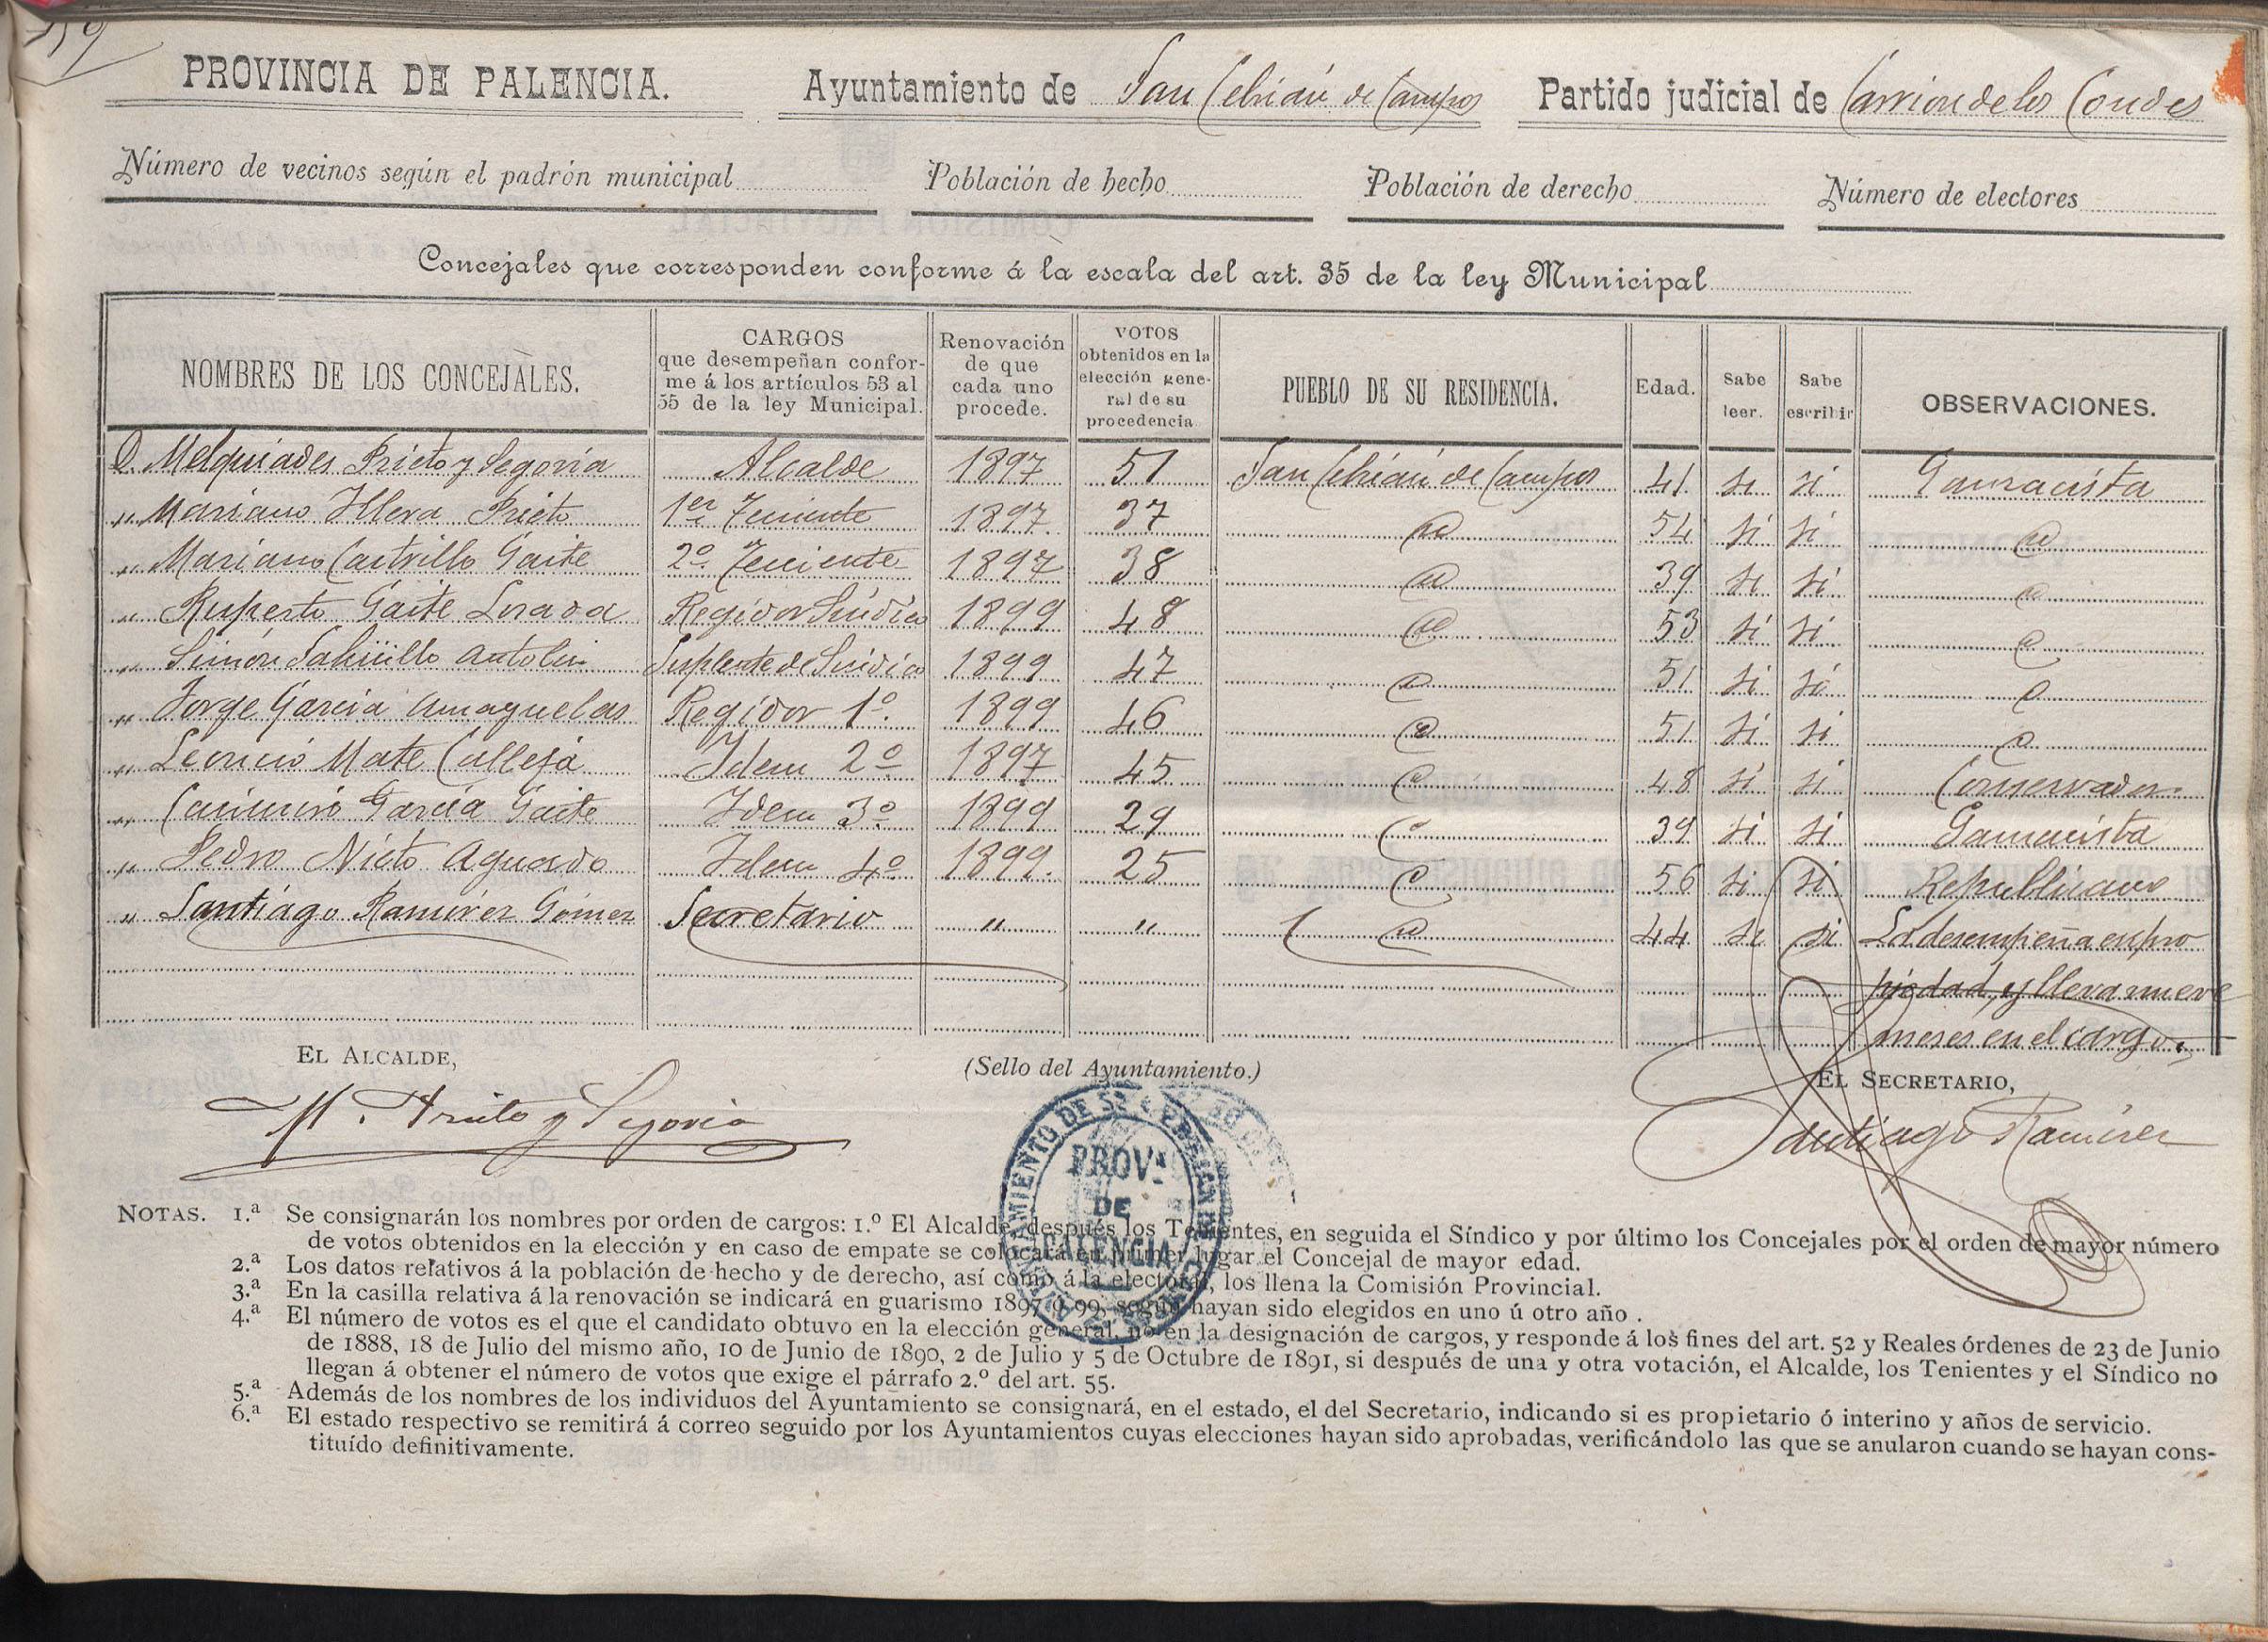 PROVINCIA DE PALENCIA. Ayuntamiento de San Cebrián de Campos Partido judicial de Carrion de los Condes
Número de vecinos según el padrón municipal Población de hecho Población de derecho Número de electores
Concejales que corresponden conforme á la escala del art. 35 de la ley Municipal
NOMBRES DE LOS CONCEJALES. CARGOS que desempeñan conforme á los artículos 53 al 55 de la ley Municipal. Renovación de que cada uno procede. VOTOS obtenidos en la elección general de su procedencia PUEBLO DE SU RESIDENCIA. Edad. Sabe leer. Sabe escribir OBSERVACIONES.
D. Melquiades Prieto y Segovia Alcalde 1897 51 San Cebrián de Campos 41 si si Gamacista
" Mariano Illera Prieto 1er Teniente 1897 37 id 54 si si id
" Mariano Castrillo Gaite 2º Teniente 1897 38 id 39 si si id
" Ruperto Gaite Losada Regidor Sindico 1899 48 id 53 si si id
" Simón Sahuillo Antolin Suplente de Sindico 1899 47 id 51 si si id
" Jorge García Amayuelas Regidor 1º. 1899 46 id 51 si si id
" Leoncio Mate Calleja Idem 2º 1897 45 id 48 si si Conservador
" Casimiro García Gaite Idem 3º 1899 29 id 39 si si Gamacista
" Pedro Nieto Aguado Idem 4º 1899. 25 id 56 si si Republicano
" Santiago Ramírez Gómez Secretario " " id 44 si si Lo desempeña en pro
piedad, y lleva nueve
meses en el cargo.
EL ALCALDE, (Sello del Ayuntamiento.) EL SECRETARIO,
M. Prieto y Segovia Santiago Ramirez
PROVª
DE
PALENCIA
NOTAS. 1.ª Se consignarán los nombres por orden de cargos: 1.º El Alcalde, después los Tenientes, en seguida el Síndico y por último los Concejales por el orden de mayor número
de votos obtenidos en la elección y en caso de empate se colocará en primer lugar el Concejal de mayor edad.
2.ª Los datos relativos á la población de hecho y de derecho, así como á la electoral, los llena la Comisión Provincial.
3.ª En la casilla relativa á la renovación se indicará en guarismo 1897 ó 99, según hayan sido elegidos en uno ú otro año .
4.ª El número de votos es el que el candidato obtuvo en la elección general, no en la designación de cargos, y responde á los fines del art. 52 y Reales órdenes de 23 de Junio
de 1888, 18 de Julio del mismo año, 10 de Junio de 1890, 2 de Julio y 5 de Octubre de 1891, si después de una y otra votación, el Alcalde, los Tenientes y el Síndico no
llegan á obtener el número de votos que exige el párrafo 2.º del art. 55.
5.ª Además de los nombres de los individuos del Ayuntamiento se consignará, en el estado, el del Secretario, indicando si es propietario ó interino y años de servicio.
6.ª El estado respectivo se remitirá á correo seguido por los Ayuntamientos cuyas elecciones hayan sido aprobadas, verificándolo las que se anularon cuando se hayan cons-
tituído definitivamente.